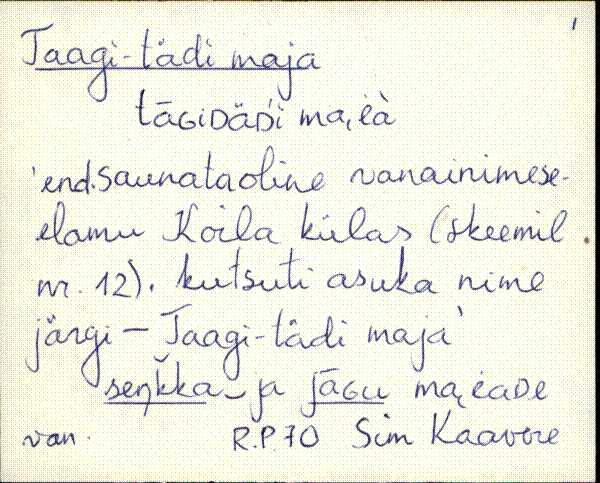 1
Taagi-tädi maja
tāGiDäD́i ma͔i̯è̀
'end. saunataoline vanainimese-
elamu Koila külas (skeemil
nr. 12). kutsuti asuka nime
järgi – Taagi-tädi maja'
seŋ̆kka – ja jāGu
van. R.P. 70 Sim Kaavere